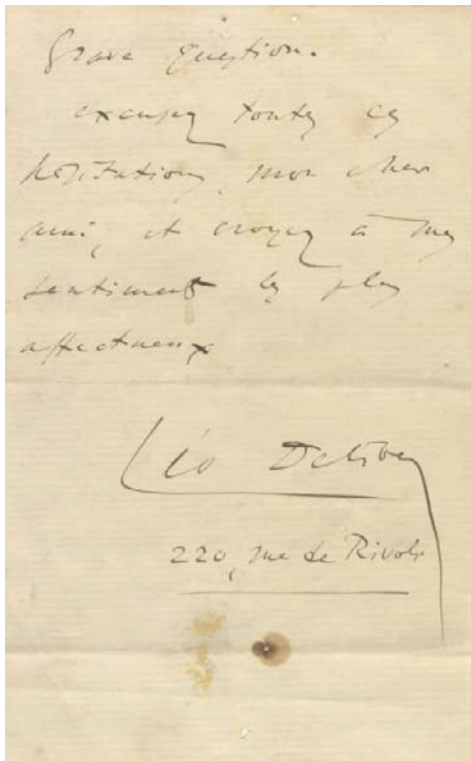 Grave question.
excusez toutes ces
hésitations, mon cher
ami, et croyez à mes
sentiments les plus
affectueux
Léo Delibes
220, rue de Rivoli